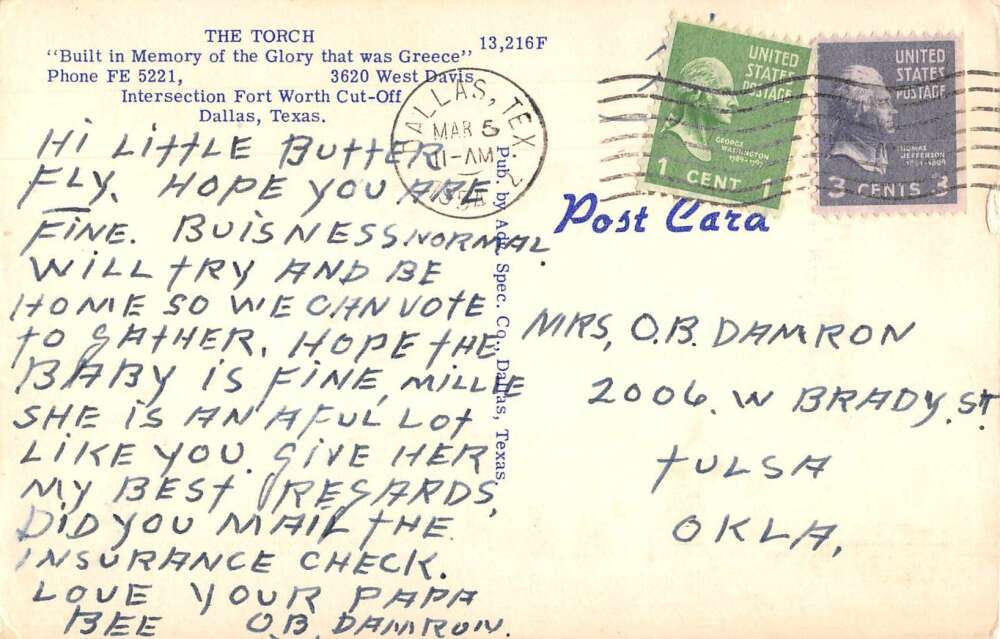 THE TORCH
"Built in Memory of the Glory that was Greece"
13,216F
Phone FE 5221, 3620 West Davis
Intersection Fort Worth Cut-Off
Dallas, Texas.
HI LITTLE BUTTER
FLY. HOPE YOU ARE
FINE. BUISNESS NORMAL.
WILL TRY AND BE
HOME SO WE CAN VOTE
TO GATHER. HOPE THE
BABY IS FINE, MILLIE
SHE IS AN AFUL LOT
LIKE YOU. GIVE HER
MY BEST REGARDS,
DID YOU MAIL THE
INSURANCE CHECK.
LOVE YOUR PAPA
BEE O.B. DAMRON.
Pub. by Adv. Spec. Co., Dallas, Texas.
DALLAS, TEX.
MAR 5
11-AM
UNITED
STATES
POSTAGE
GEORGE
WASHINGTON
1789-1797
1 CENT 1
UNITED
STATES
POSTAGE
THOMAS
JEFFERSON
1801-1809
3 CENTS 3
Post Card
MRS, O.B. DAMRON
2006. W BRADY. ST
TULSA
OKLA,